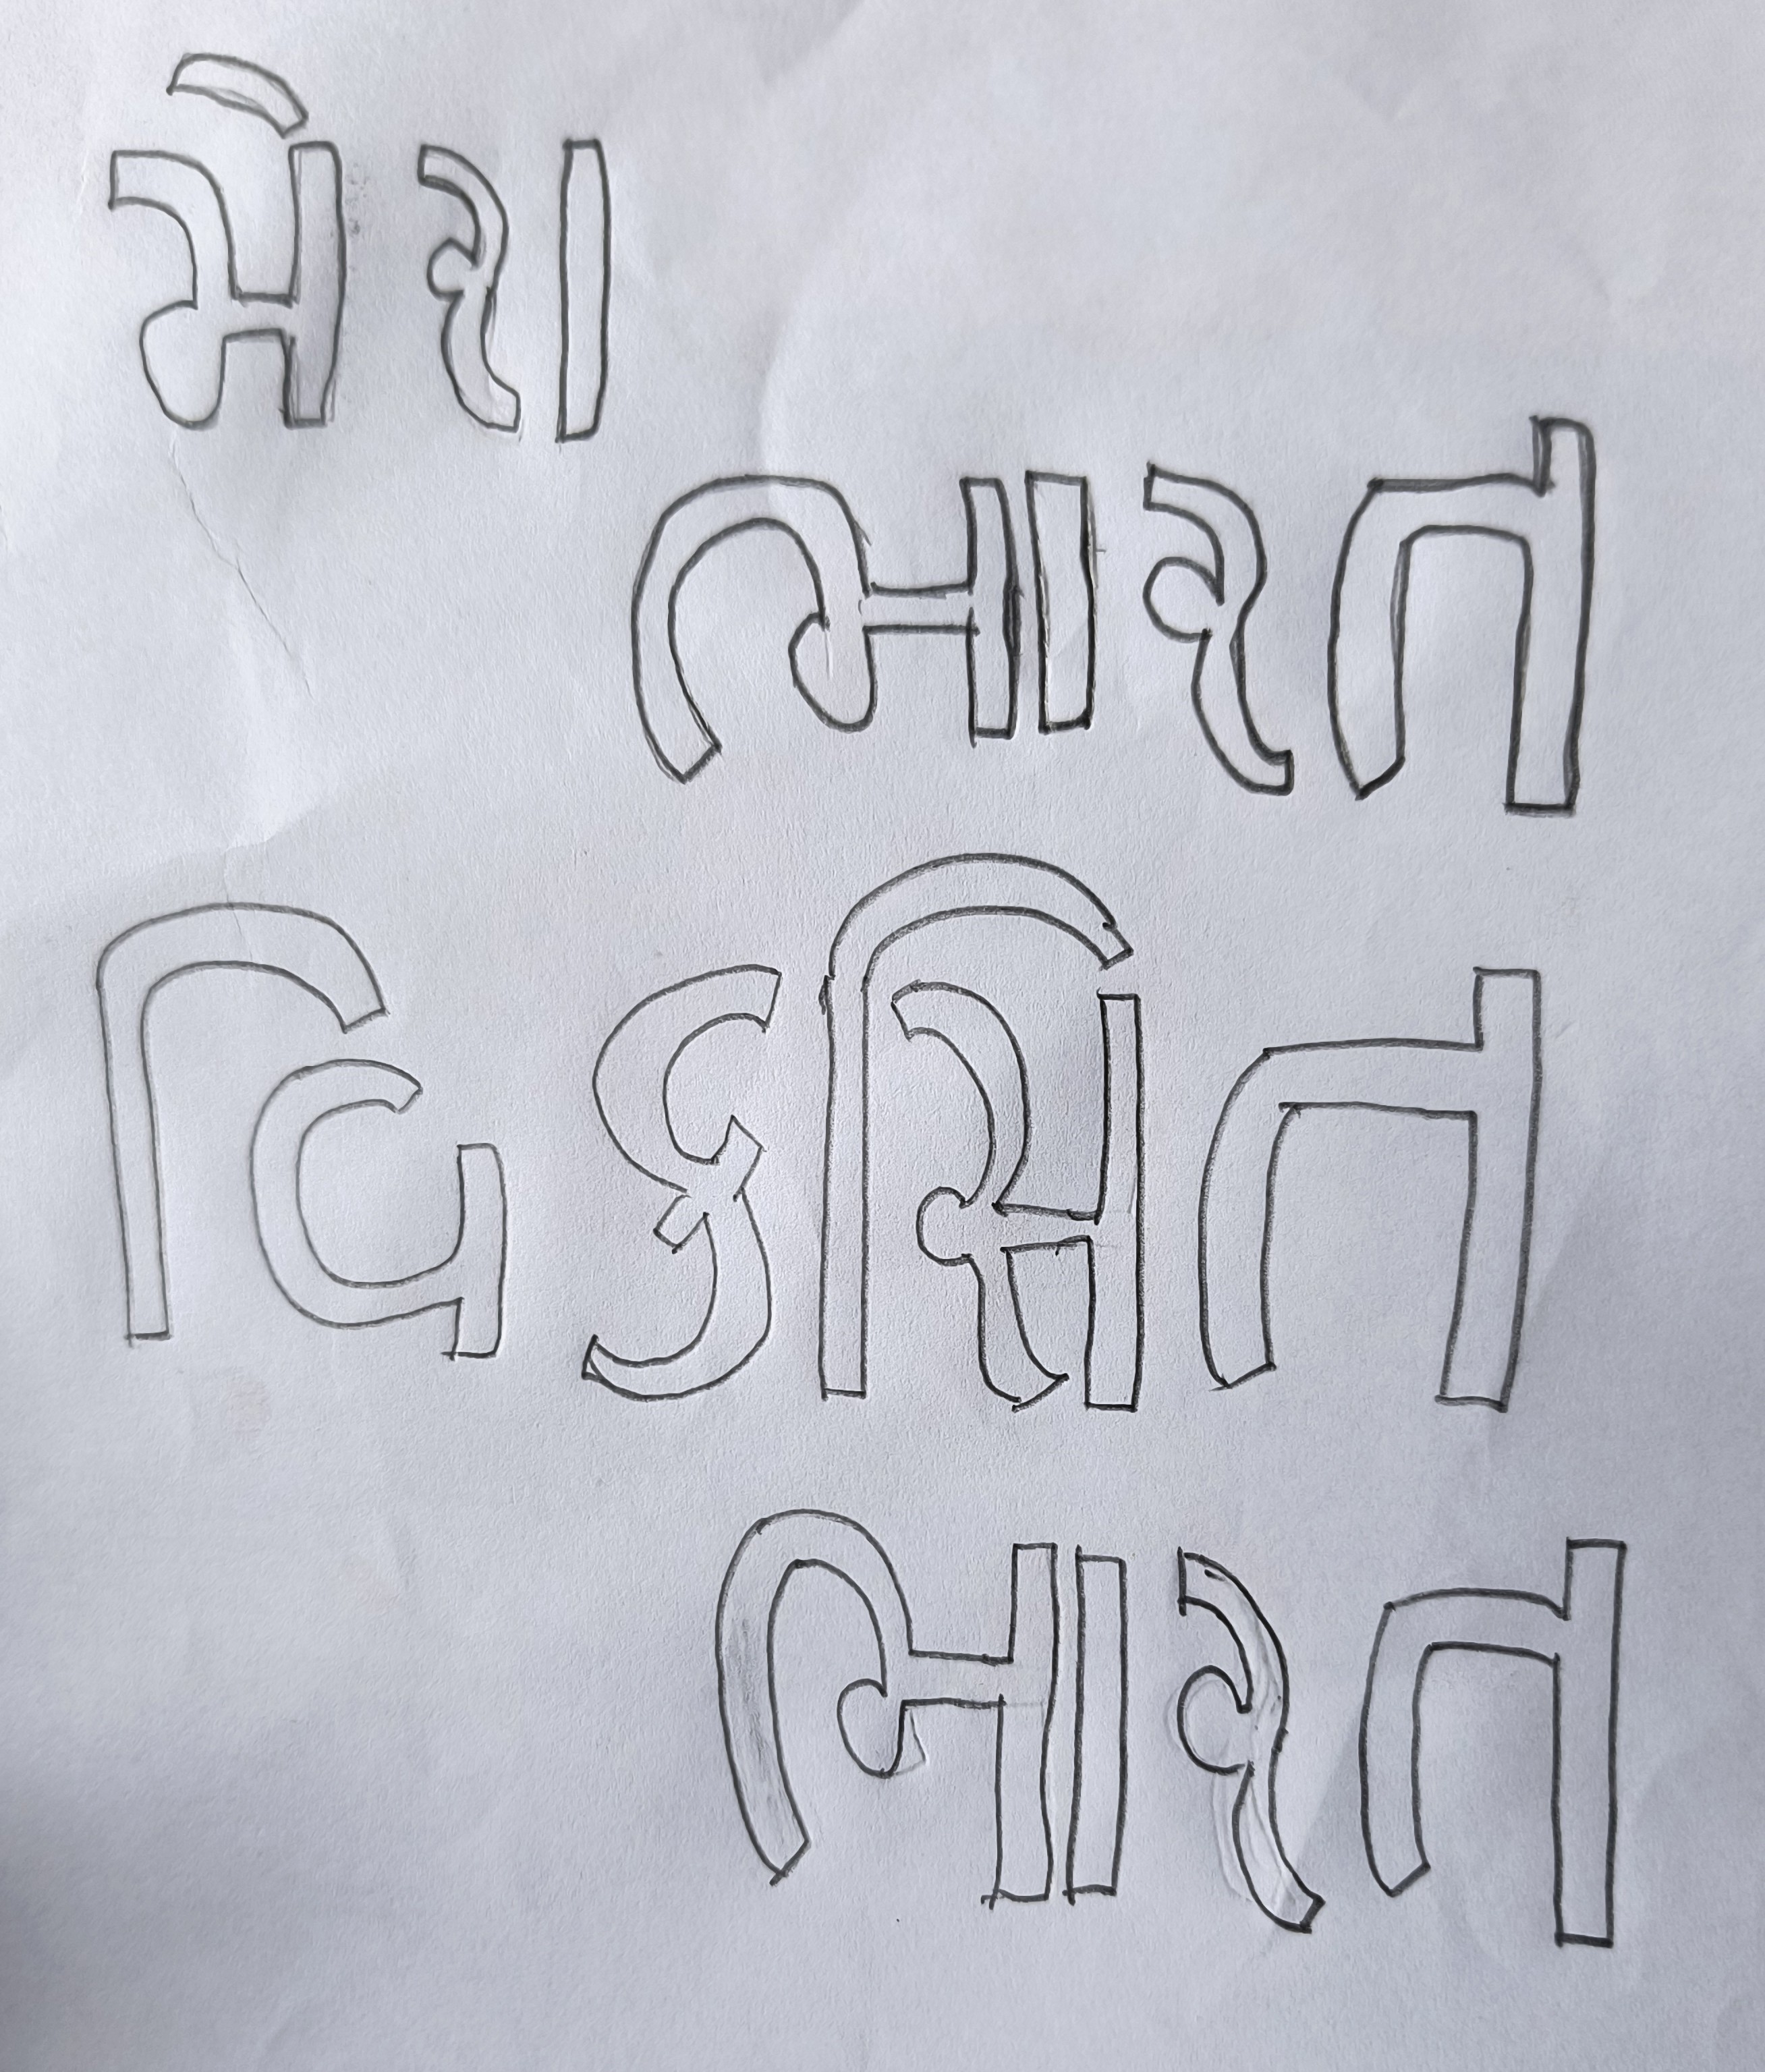 મેરા
ભારત
વિકસિત
ભારત